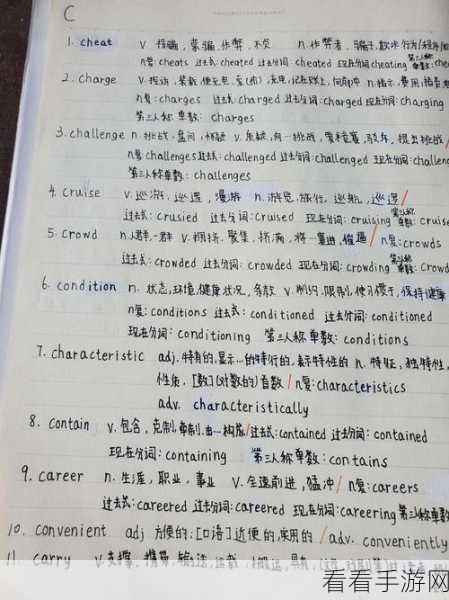 C
1. cheat v. 欺骗, 蒙骗, 作弊, 不忠 n. 作弊者, 骗子, 欺诈行为
n复: cheats 过去式: cheated 过去分词: cheated 现在分词: cheating 第三人称单数:
2. charge v. 控诉, 装载, 使充电, 何时冲 n. 指示, 费用
n复: charges 过去式: charged 过去分词: charged 现在分词: charging
第三人称单数: charges
3. challenge n. 挑战, 盘问, 怀疑 v. 质疑, 向…挑战, 需和竞赛, 驳斥, 提出挑战/
n复: challenges 过去式: challenged 过去分词: challenged 现在分词:
第三人称单数: challenges
4. cruise v. 巡游, 巡逻, 漫游 n. 游览, 旅行, 巡航, 巡逻/
过去式: crusied 过去分词: cruised 现在分词: cruising 第三人称单数: cruise
5. crowd n. 人群, 一群 v. 拥挤, 聚集, 挤满, 将…塞进, 催逼/ n复: crowds
过去式: crowded 过去分词: crowded 现在分词: crowding 第三人称单数: crowd
6. condition n. 状态, 环境, 健康状况, 条款 v. 制约, 限制, 使习惯于, 保持健康
n复: conditions 过去式: conditioned 过去分词: conditioned
现在分词: conditioning 第三人称单数: conditions
7. characteristic adj. 特有的, 显示…的特征的, 表示特性的 n. 特征, 独特性,
性质, [数](对数的)首数/ n复: characteristics
adv. characteristically
8. contain v. 包含, 克制, 牵制, 由…构成/ 过去式: contained 过去分词: contained
现在分词: containing 第三人称单数: contains
9. career n. 生涯, 职业, 事业 v. 全速前进, 猛冲/ n复: careers
过去式: careered 过去分词: careered 现在分词: careering 第三人称单数
10. convenient adj 方便的; [口语] 近便的, 实用的/ adv. conveniently
11. carry v. 支撑, 携带, 输送, 运载, 搬运, 具有
看看手游网